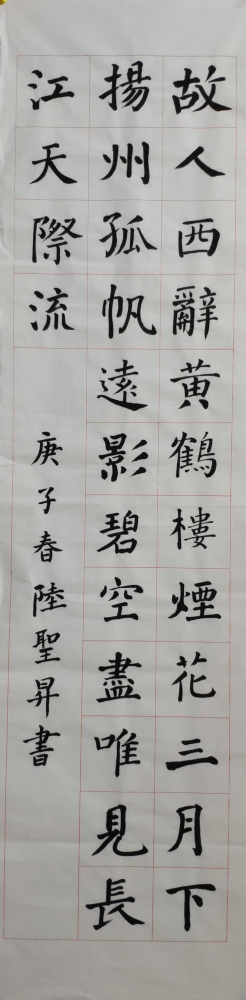 故人西辭黃鶴樓煙花三月下
揚州孤帆遠影碧空盡唯見長
江天際流
庚子春陸聖昇書